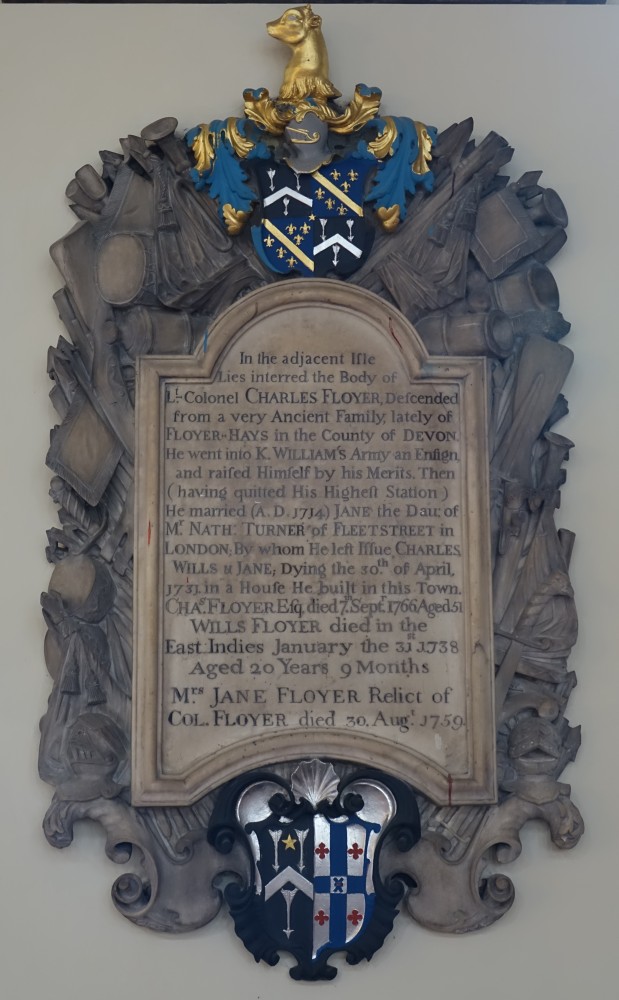 In the adjacent Iſle
Lies interred the Body of
Lt. Colonel CHARLES FLOYER, Deſcended
from a very Ancient Family, lately of
FLOYER-HAYS in the County of DEVON.
He went into K. WILLIAM'S Army an Enſign,
and raiſed Himſelf by his Merits. Then
(having quitted His Higheſt Station)
He married (A.D. 1714) JANE the Dau: of
Mr. NATH: TURNER of FLEETSTREET in
LONDON, By whom He left Iſſue, CHARLES,
WILLS & JANE; Dying the 30th of April,
1731. in a Houſe He built in this Town.
CHAs. FLOYER Eſq. died 7th Sept. 1766 Aged 51
WILLS FLOYER died in the
East Indies January the 31st 1738
Aged 20 Years 9 Months
Mrs JANE FLOYER Relict of
COL. FLOYER died 30. Augt. 1759.